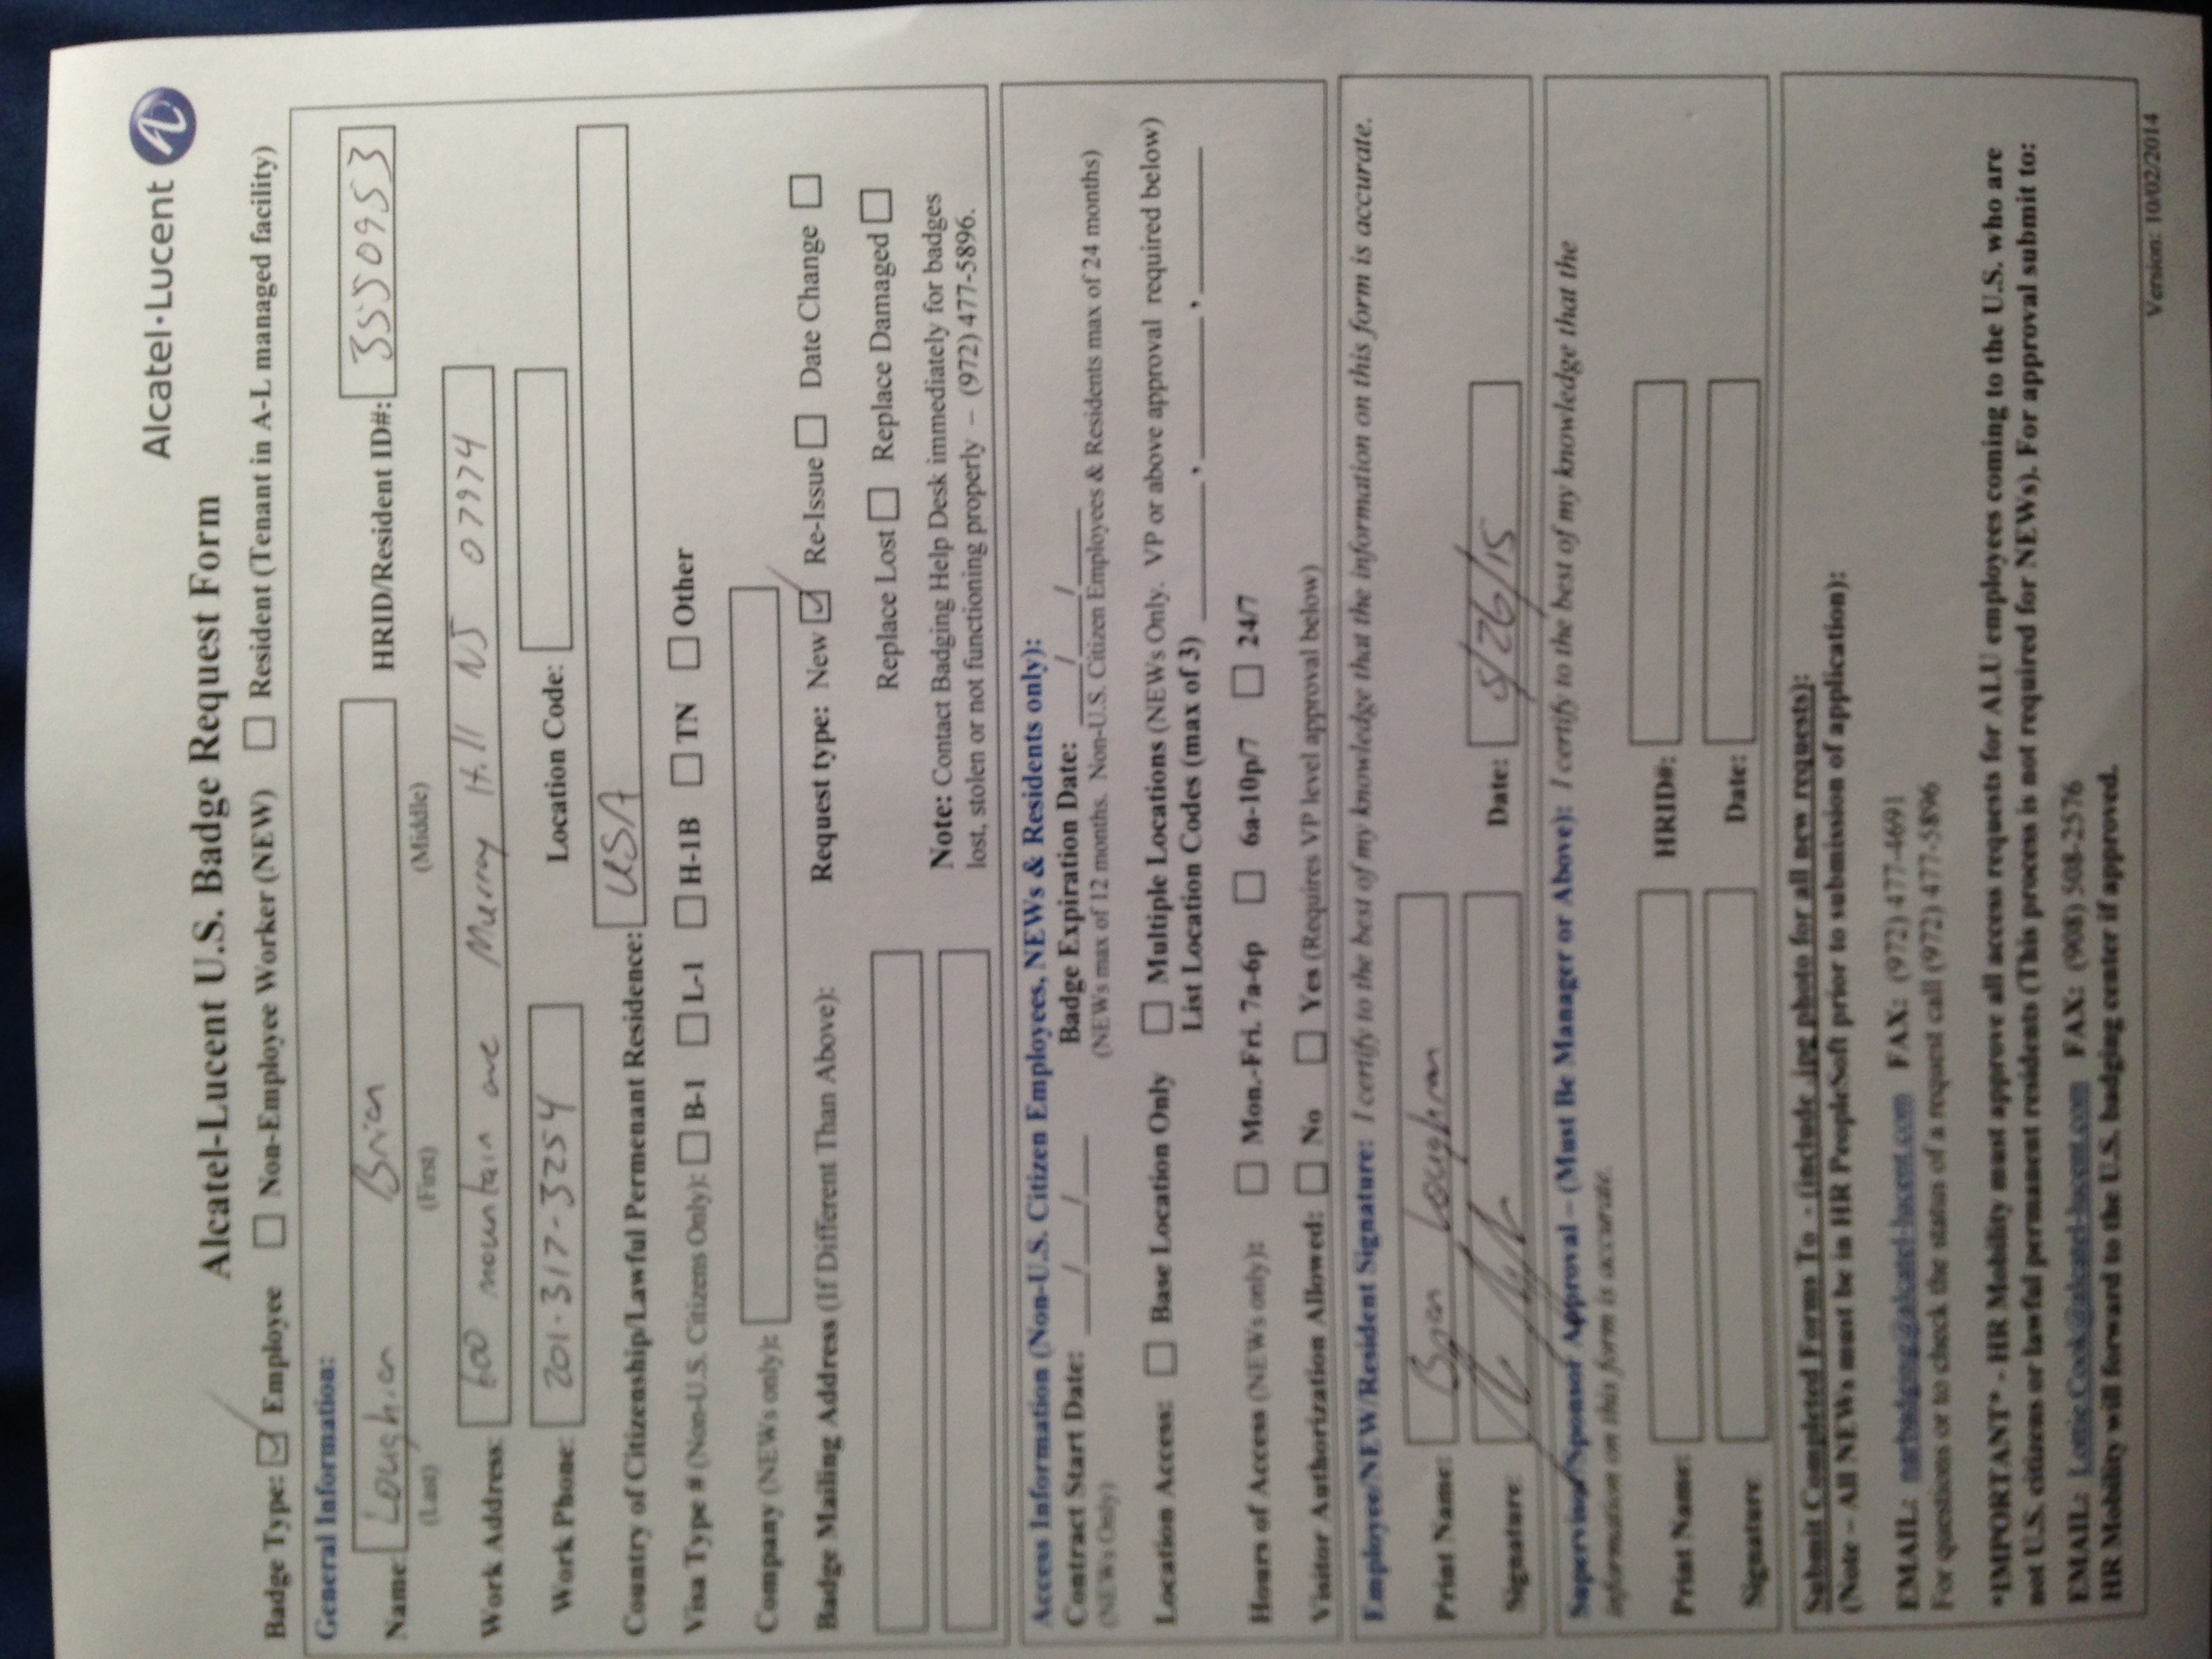 Alcatel·Lucent
Alcatel-Lucent U.S. Badge Request Form
Badge Type: ☑ Employee ☐ Non-Employee Worker (NEW) ☐ Resident (Tenant in A-L managed facility)
General Information:
Name: Loughran Brian HRID/Resident ID#: 35509953
(Last) (First) (Middle)
Work Address: 600 mountain ave Murray Hill NJ 07974
Work Phone: 201-317-3254 Location Code:
Country of Citizenship/Lawful Permenant Residence: USA
Visa Type # (Non-U.S. Citizens Only): ☐ B-1 ☐ L-1 ☐ H-1B ☐ TN ☐ Other
Company (NEWs only):
Badge Mailing Address (If Different Than Above): Request type: New ☑ Re-Issue ☐ Date Change ☐
Replace Lost ☐ Replace Damaged ☐
Note: Contact Badging Help Desk immediately for badges
lost, stolen or not functioning properly – (972) 477-5896.
Access Information (Non-U.S. Citizen Employees, NEWs & Residents only):
Contract Start Date: ___/___/___ Badge Expiration Date: ___/___/___
(NEWs Only) (NEWs max of 12 months. Non-U.S. Citizen Employees & Residents max of 24 months)
Location Access: ☐ Base Location Only ☐ Multiple Locations (NEWs Only. VP or above approval required below)
List Location Codes (max of 3) ______, ______, ______
Hours of Access (NEWs only): ☐ Mon.-Fri. 7a-6p ☐ 6a-10p/7 ☐ 24/7
Visitor Authorization Allowed: ☐ No ☐ Yes (Requires VP level approval below)
Employee/NEW/Resident Signature: I certify to the best of my knowledge that the information on this form is accurate.
Print Name: Brian Loughran
Signature: Date: 5/26/15
Supervisor/Sponsor Approval – (Must Be Manager or Above): I certify to the best of my knowledge that the
information on this form is accurate.
Print Name: HRID#:
Signature: Date:
Submit Completed Forms To - (include .jpg photo for all new requests):
(Note – All NEWs must be in HR PeopleSoft prior to submission of application):
EMAIL: narbadging@alcatel-lucent.com FAX: (972) 477-4691
For questions or to check the status of a request call (972) 477-5896
*IMPORTANT* - HR Mobility must approve all access requests for ALU employees coming to the U.S. who are
not U.S. citizens or lawful permanent residents (This process is not required for NEWs). For approval submit to:
EMAIL: Lorrie.Cook@alcatel-lucent.com FAX: (908) 508-2576
HR Mobility will forward to the U.S. badging center if approved.
Version: 10/02/2014